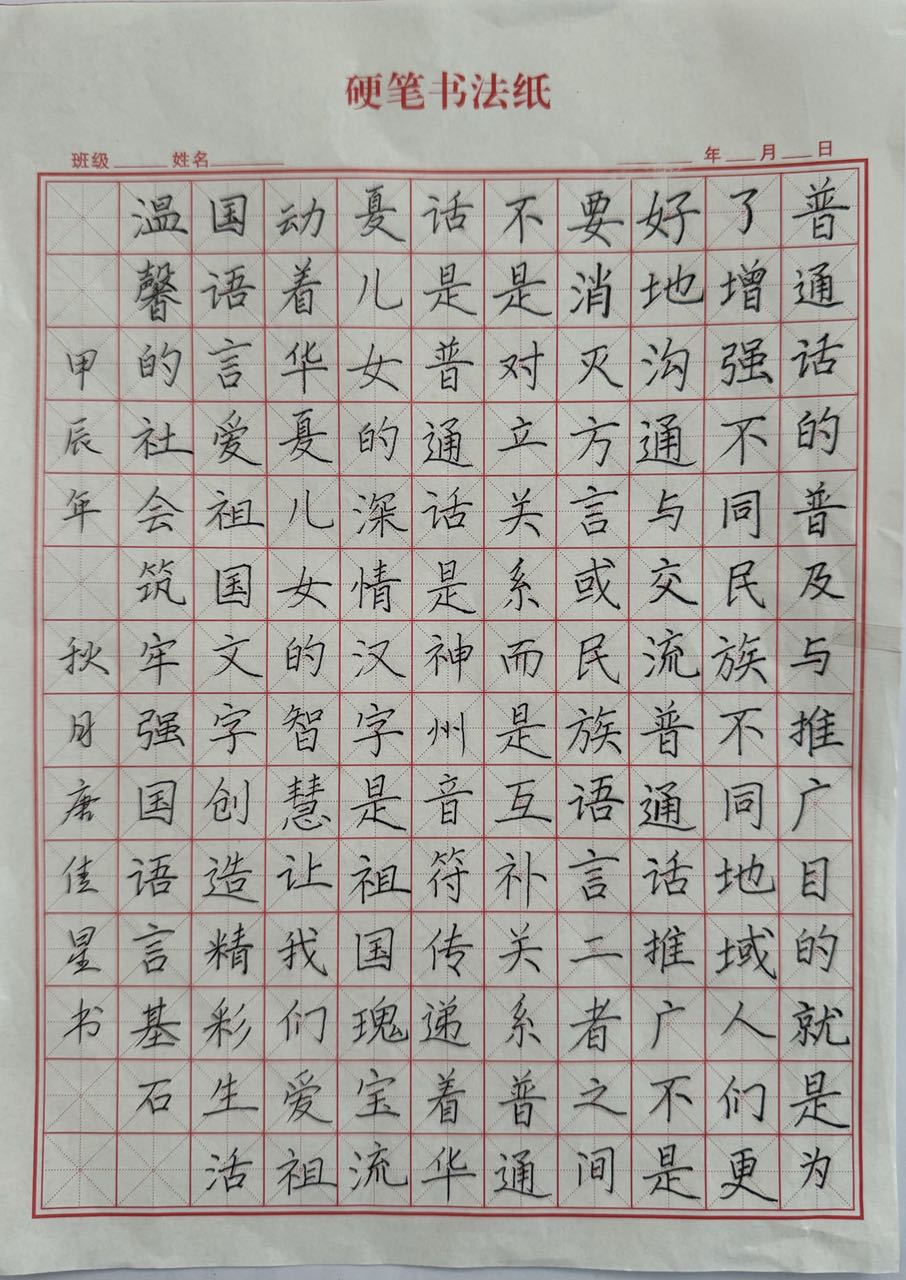 硬笔书法纸
班级 姓名 年 月 日
普通话的普及与推广目的就是为
了增强不同民族不同地域人们更
好地沟通与交流普通话推广不是
要消灭方言或民族语言二者之间
不是对立关系而是互补关系普通
话是普通话是神州音符传递着华
夏儿女的深情汉字是祖国瑰宝流
动着华夏儿女的智慧让我们爱祖
国语言爱祖国文字创造精彩生活
温馨的社会筑牢强国语言基石
甲辰年 秋月唐佳星书